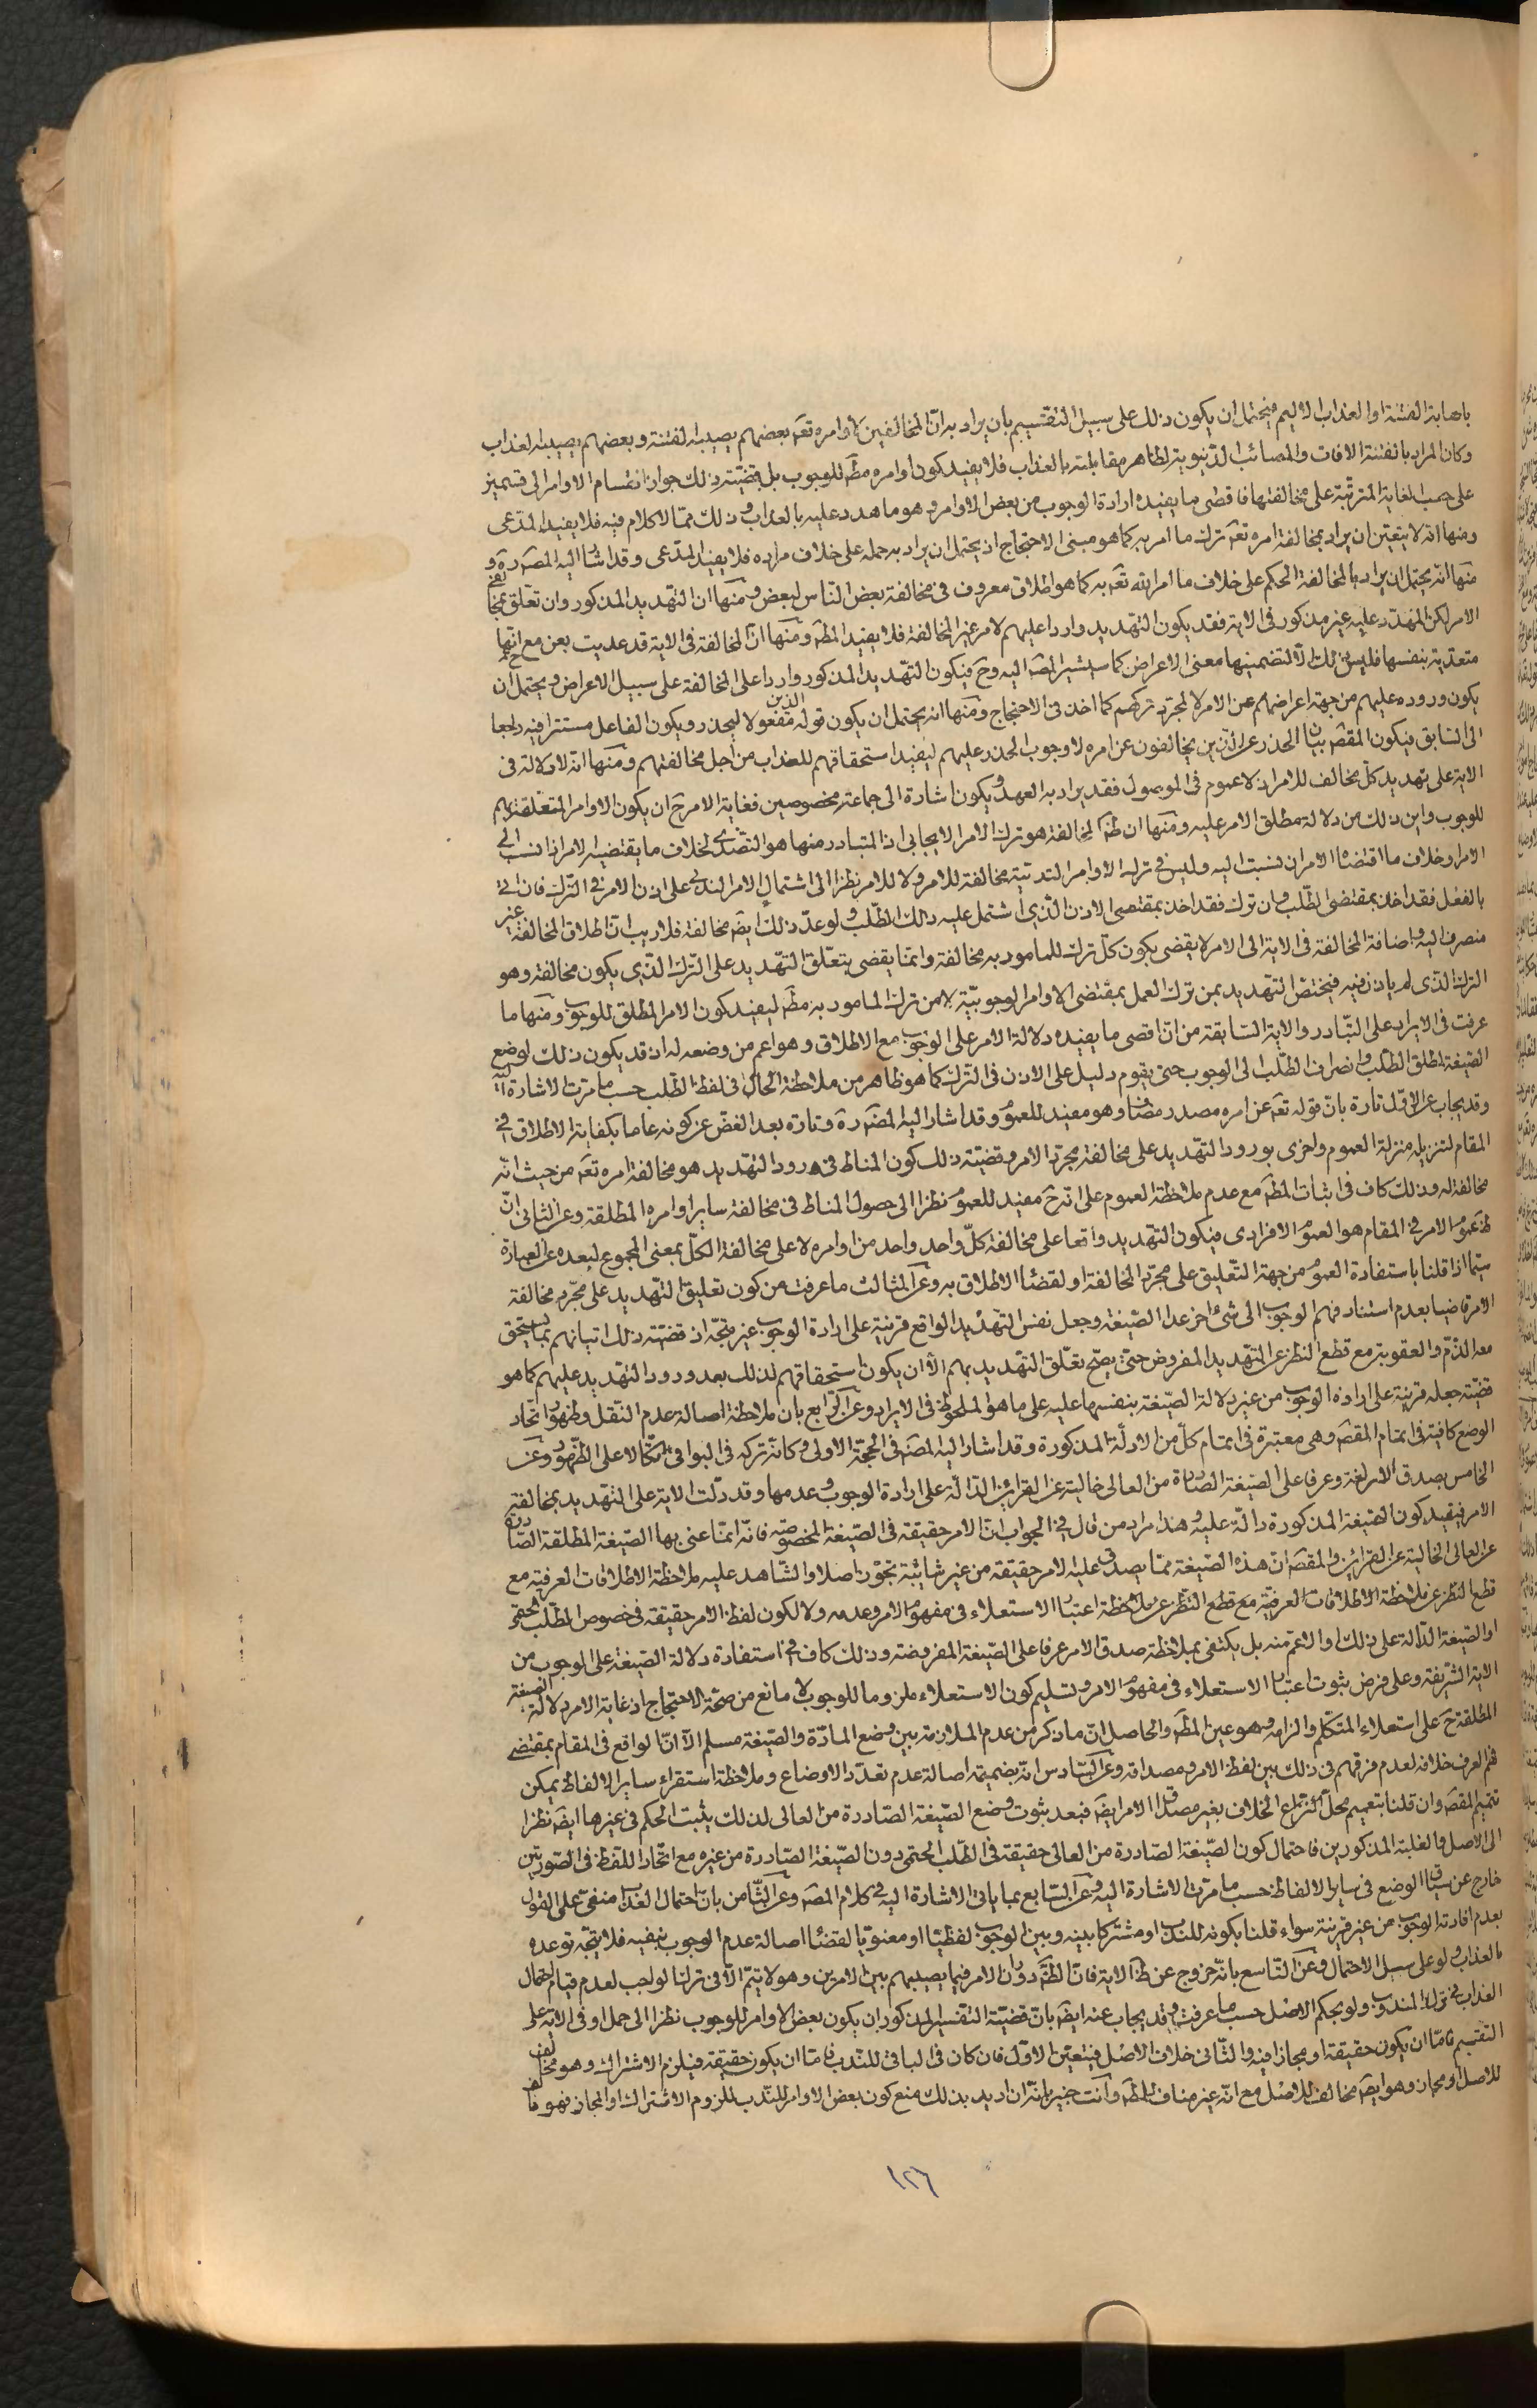 باصابة الفتنة او العذاب الاليم فيحتمل ان يكون ذلك على سبيل التقسيم بان يراد به ان المخالفين لاوامره تعه بعضهم يصيبه الفتنة وبعضهم يصيبه العذاب
وكان المراد بالفتنة الافات والمصائب الدنيوية لظاهر مقابلته بالعذاب فلا يفيد كون اوامره مطه للوجوب بل قضيته ذلك جواز انقسام الاوامر الى قسمين
على حسب الغاية المترتبة على مخالفتها فاقصى ما يفيده ارادة الوجوب من بعض الاوامر وهو ما هدد عليه بالعذاب وذلك مما لا كلام فيه فلا يفيد المدعى
ومنها انه لا يتعين ان يراد بمخالفة امره تعه ترك ما امر به كما هو مبنى الاحتجاج اذ يحتمل ان يراد به حمله على خلاف مراده فلا يفيد المدعى وقد اشار اليه المصه ره و
منها انه يحتمل ان يراد بالمخالفة الحكم على خلاف ما امر الله تعه به كما هو اطلاق معروف في مخالفة بعض الناس لبعض ومنها ان التهديد المذكور وان تعلق بمخالفة
الامر لكن المهدد عليه غير مذكور في الاية فقد يكون التهديد واردا عليهم لامر غير المخالفة فلا يفيد المطه ومنها ان المخالفة في الاية قد عديت بعن مع انها
متعدية بنفسها فليس ذلك الا لتضمينها معنى الاعراض كما سيشير المصه اليه وح فيكون التهديد المذكور واردا على المخالفة على سبيل الاعراض ويحتمل ح ان
يكون وروده عليهم من جهة اعراضهم عن الامر لا لمجرد تركهم كما اخذ في الاحتجاج ومنها انه يحتمل ان يكون قوله الذين مفعولا ليحذر ويكون الفاعل مستترا فيه راجعا
الى السابق فيكون المقصه بيان الحذر عن الذين يخالفون عن امره لا وجوب الحذر عليهم ليفيد استحقاقهم للعذاب من اجل مخالفتهم ومنها انه لا دلالة في
الاية على تهديد كل مخالف للامر اذ لا عموم في الموصول فقد يراد به العهد ويكون اشارة الى جماعة مخصوصين فغاية الامر ح ان يكون الاوامر المتعلقة بهم
للوجوب واين ذلك من دلالة مطلق الامر عليه ومنها ان ظه المخالفة هو ترك الامر الايجابي اذ المتبادر منها هو التصدي لخلاف ما يقتضيه الامر اذا نسب الى
الامر او خلاف ما اقتضاه الامر ان نسبت اليه وليس في ترك الاوامر الندبية مخالفة للامر ولا للامر نظرا الى اشتمال الامر الندبي على اذن الامر في الترك فان اتى
بالفعل فقد اخذ بمقتضى الطلب وان ترك فقد اخذ بمقتضى الاذن الذي اشتمل عليه ذلك الطلب ولو عد ذلك ايضه مخالفة فلا ريب ان اطلاق المخالفة غير
منصرف اليه واضافة المخالفة في الاية الى الامر لا يقضي بكون كل ترك للمامور به مخالفة وانما يقضي بتعلق التهديد على الترك الذي يكون مخالفة وهو
الترك الذي لم ياذن فيه فيختص التهديد بمن ترك العمل بمقتضى الاوامر الوجوبية لا من ترك المامور به مطه ليفيد كون الامر المطلق للوجوب ومنها ما
عرفت في الايراد على التبادر والاية السابقة من ان اقصى ما يفيده دلالة الامر على الوجوب مع الاطلاق وهو اعم من وضعه له اذ قد يكون ذلك لوضع
الصيغة لمطلق الطلب وانصراف الطلب الى الوجوب حتى يقوم دليل على الاذن في الترك كما هو ظاهر من ملاحظة الحال في لفظ الطلب حسب ما مرت الاشارة اليه
وقد يجاب عن الاول تارة بان قوله تعه عن امره مصدر مضاف وهو مفيد للعموم وقد اشار اليه المصه ره وتارة بعد الغض عن كونه عاما بكفاية الاطلاق في
المقام لتنزيله منزلة العموم واخرى بورود التهديد على مخالفة مجرد الامر وقضيته ذلك كون المناط في ورود التهديد هو مخالفة امره تعه من حيث انه
مخالفة له وذلك كاف في اثبات المطه مع عدم ملاحظة العموم على انه ح مفيد للعموم نظرا الى حصول المناط في مخالفة ساير اوامره المطلقة وعن الثاني ان
ظه عموم الامر في المقام هو العموم الافرادي فيكون التهديد واقعا على مخالفة كل واحد واحد من اوامره لا على مخالفة الكل بمعنى المجموع لبعده عن العبارة
سيما اذا قلنا باستفادة العموم من جهة التعليق على مجرد المخالفة او لقضاء الاطلاق به وعن الثالث ما عرفت من كون تعليق التهديد على مجرد مخالفة
الامر قاضيا بعدم استناد فهم الوجوب الى شئ اخر عدا الصيغة وجعل نفس التهديد الواقع قرينة على ارادة الوجوب غير متجه اذ قضيته ذلك اتيانهم بما يستحق
معه الذم والعقوبة مع قطع النظر عن التهديد المفروض حتى يصح تعلق التهديد بهم الا ان يكون استحقاقهم لذلك بعد ورود التهديد عليهم كما هو
قضيته جعله قرينة على ارادة الوجوب من غير دلالة الصيغة بنفسها عليه على ما هو الملحوظ في الايراد وعن الرابع بان ملاحظة اصالة عدم النقل وظهور اتحاد
الوضع كافية في اتمام المقصه وهي معتبرة في اتمام كل من الادلة المذكورة وقد اشار اليه المصه في الحجة الاولى وكانه تركه في البواقي اتكالا على الظهور وعن
الخامس بصدق الامر لغة وعرفا على الصيغة الصادرة من العالي خالية عن القرائن الدالة على ارادة الوجوب وعدمها وقد دلت الاية على التهديد بمخالفة
الامر فيفيد كون الصيغة المذكورة دالة عليه وهذا مراد من قال في الجواب ان الامر حقيقة في الصيغة المخصوصة فانه انما عنى بها الصيغة المطلقة الصادرة
عن العالي الخالية عن القرائن والمقصه ان هذه الصيغة مما يصدق عليه الامر حقيقة من غير شائبة تجوز اصلا والشاهد عليه ملاحظة الاطلاقات العرفية مع
قطع النظر عن ملاحظة الاطلاقات العرفية مع قطع النظر عن ملاحظة اعتبار الاستعلاء في مفهوم الامر وعدمه ولا لكون لفظ الامر حقيقة في خصوص الطلب الحتمي
او الصيغة الدالة على ذلك او الاعم منه بل يكتفى بملاحظة صدق الامر عرفا على الصيغة المفروضة وذلك كاف في استفادة دلالة الصيغة على الوجوب من
الاية الشريفة وعلى فرض ثبوت اعتبار الاستعلاء في مفهوم الامر وتسليم كون الاستعلاء ملزوما للوجوب لا مانع من صحة الاحتجاج اذ غاية الامر دلالة الصيغة
المطلقة ح على استعلاء المتكلم والزامه وهو عين المطه والحاصل ان ما ذكر من عدم الملازمة بين وضع المادة والصيغة مسلم الا ان الواقع في المقام بمقتضى
فهم العرف خلافه لعدم فرقهم في ذلك بين لفظ الامر ومصداقه وعن السادس انه بضميمة اصالة عدم تعدد الاوضاع وملاحظة استقراء ساير الالفاظ يمكن
تتميم المقصه وان قلنا بتعميم محل النزاع الخلاف بغير مصداق الامر ايضه فبعد ثبوت وضع الصيغة الصادرة من العالي لذلك يثبت الحكم في غيرها ايضه نظرا
الى الاصل والغلبة المذكورين فاحتمال كون الصيغة الصادرة من العالي حقيقة في الطلب الحتمي دون الصيغة الصادرة من غيره مع اتحاد اللفظ في الصورتين
خارج عن سياق الوضع في ساير الالفاظ حسب ما مرت الاشارة اليه وعن السابع بما ياتي الاشارة اليه في كلام المصه وعن الثامن بان احتمال العذاب منفي على القول
بعدم افادته الوجوب من غير قرينة سواء قلنا بكونه للندب او مشتركا بينه وبين الوجوب لفظيا او معنويا لقضاء اصالة عدم الوجوب بنفيه فلا يتجه توعده
بالعذاب ولو على سبيل الاحتمال وعن التاسع بانه خروج عن ظه الاية فان الظه دوران الامر فيما يصيبهم بين الامرين وهو لا يتم الا في ترك الواجب لعدم قيام احتمال
العذاب في ترك المندوب ولو بحكم الاصل حسب ما عرفت وقد يجاب عنه ايضه بان قضية التقسيم المذكور ان يكون بعض الاوامر للوجوب نظرا الى حمل او في الاية على
التقسيم فاما ان يكون حقيقة او مجازا فيه والثاني خلاف الاصل فيتعين الاول فان كان في الباقي للندب فاما ان يكون حقيقة فيلزم الاشتراك وهو مخالف
للاصل او مجاز وهو ايضه مخالف للاصل مع انه غير مناف للمطه وانت خبير بانه ان اريد بذلك منع كون بعض الاوامر للندب للزوم الاشتراك او المجاز فهو فا
١٢٦